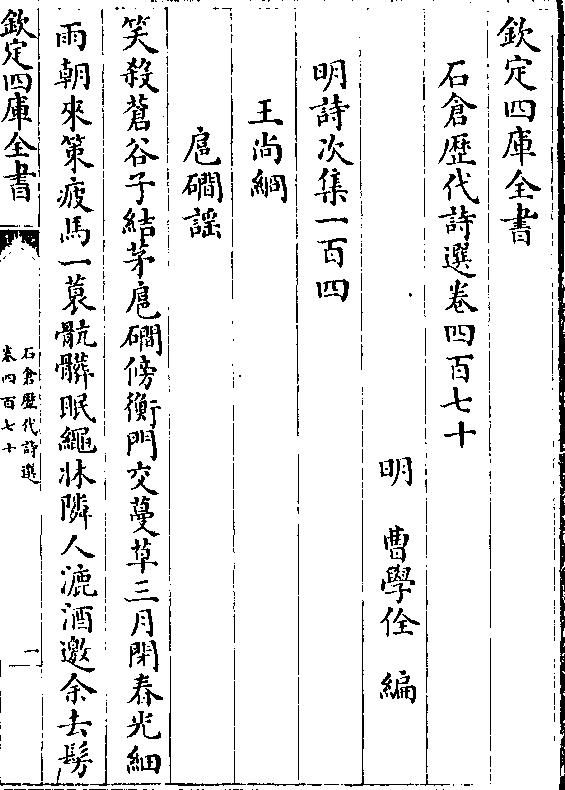 欽定四庫全書
石倉歴代詩選卷四百七十
明 曹學佺 編
明詩次集一百四
王尚絅
扈磵謡
笑殺蒼谷子結茅扈磵傍衡門交蔓草三月閉春光細
雨朝來策疲馬一蓑骯髒眠繩牀隣人漉酒邀余去髣
欽定四庫全書
石倉歴代詩選
卷四百七十
一